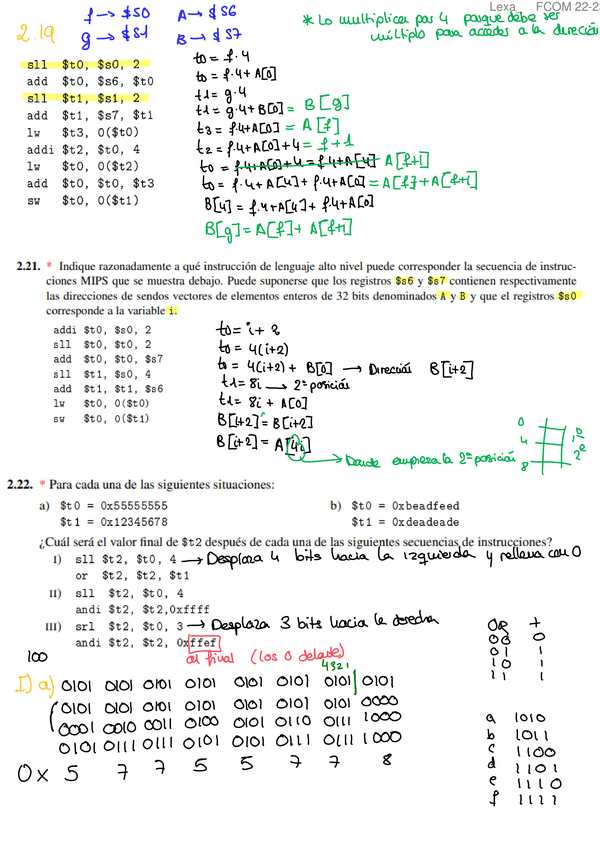 Lexa FCOM 22-2
f → $S0 A → $S6
2.19 g → $S1 B → $S7
* Lo multiplica por 4 porque debe ser
múltiplo para acceder a la dirección
sll $t0, $s0, 2
add $t0, $s6, $t0
sll $t1, $s1, 2
add $t1, $s7, $t1
lw $t3, 0($t0)
addi $t2, $t0, 4
lw $t0, 0($t2)
add $t0, $t0, $t3
sw $t0, 0($t1)
t0 = f·4
t0 = f·4+A[0]
t1 = g·4
t1 = g·4+B[0] = B[g]
t3 = f·4+A[0] = A[f]
t2 = f·4+A[0]+4 = f+1
t0 = f·4+A[0]+4 = f·4+A[4] A[f+1]
t0 = f·4+A[4]+f·4+A[0] = A[f]+A[f+1]
B[4] = f·4+A[4]+f·4+A[0]
B[g] = A[f] + A[f+1]
2.21. * Indique razonadamente a qué instrucción de lenguaje alto nivel puede corresponder la secuencia de instruc-
ciones MIPS que se muestra debajo. Puede suponerse que los registros $s6 y $s7 contienen respectivamente
las direcciones de sendos vectores de elementos enteros de 32 bits denominados A y B y que el registros $s0
corresponde a la variable i.
addi $t0, $s0, 2
sll $t0, $t0, 2
add $t0, $t0, $s7
sll $t1, $s0, 4
add $t1, $t1, $s6
lw $t0, 0($t0)
sw $t0, 0($t1)
t0 = i + 2
t0 = 4(i+2)
t0 = 4(i+2) + B[0] → Dirección B[i+2]
t1 = 8i → 2ª posición
t1 = 8i + A[0]
B[i+2] = B[i+2]
B[i+2] = A[4i]
→ Donde empieza la 2ª posición
0
4
8
0
1
2
2.22. * Para cada una de las siguientes situaciones:
a) $t0 = 0x55555555 b) $t0 = 0xbeadfeed
$t1 = 0x12345678 $t1 = 0xdeadeade
¿Cuál será el valor final de $t2 después de cada una de las siguientes secuencias de instrucciones?
I) sll $t2, $t0, 4 → Desplaza 4 bits hacia la izquierda y rellena con 0
or $t2, $t2, $t1
II) sll $t2, $t0, 4
andi $t2, $t2,0xffff
III) srl $t2, $t0, 3 → Desplaza 3 bits hacia la derecha
andi $t2, $t2, 0xffef
al final (los 0 delante)
100
OR +
00 0
01 1
10 1
11 1
4321
I) a) 0101 0101 0101 0101 0101 0101 0101 0101
0101 0101 0101 0101 0101 0101 0101 0000
0001 0010 0011 0100 0101 0110 0111 1000
0101 0111 0111 0101 0101 0111 0111 1000
0x 5 7 7 5 5 7 7 8
a 1010
b 1011
c 1100
d 1101
e 1110
f 1111